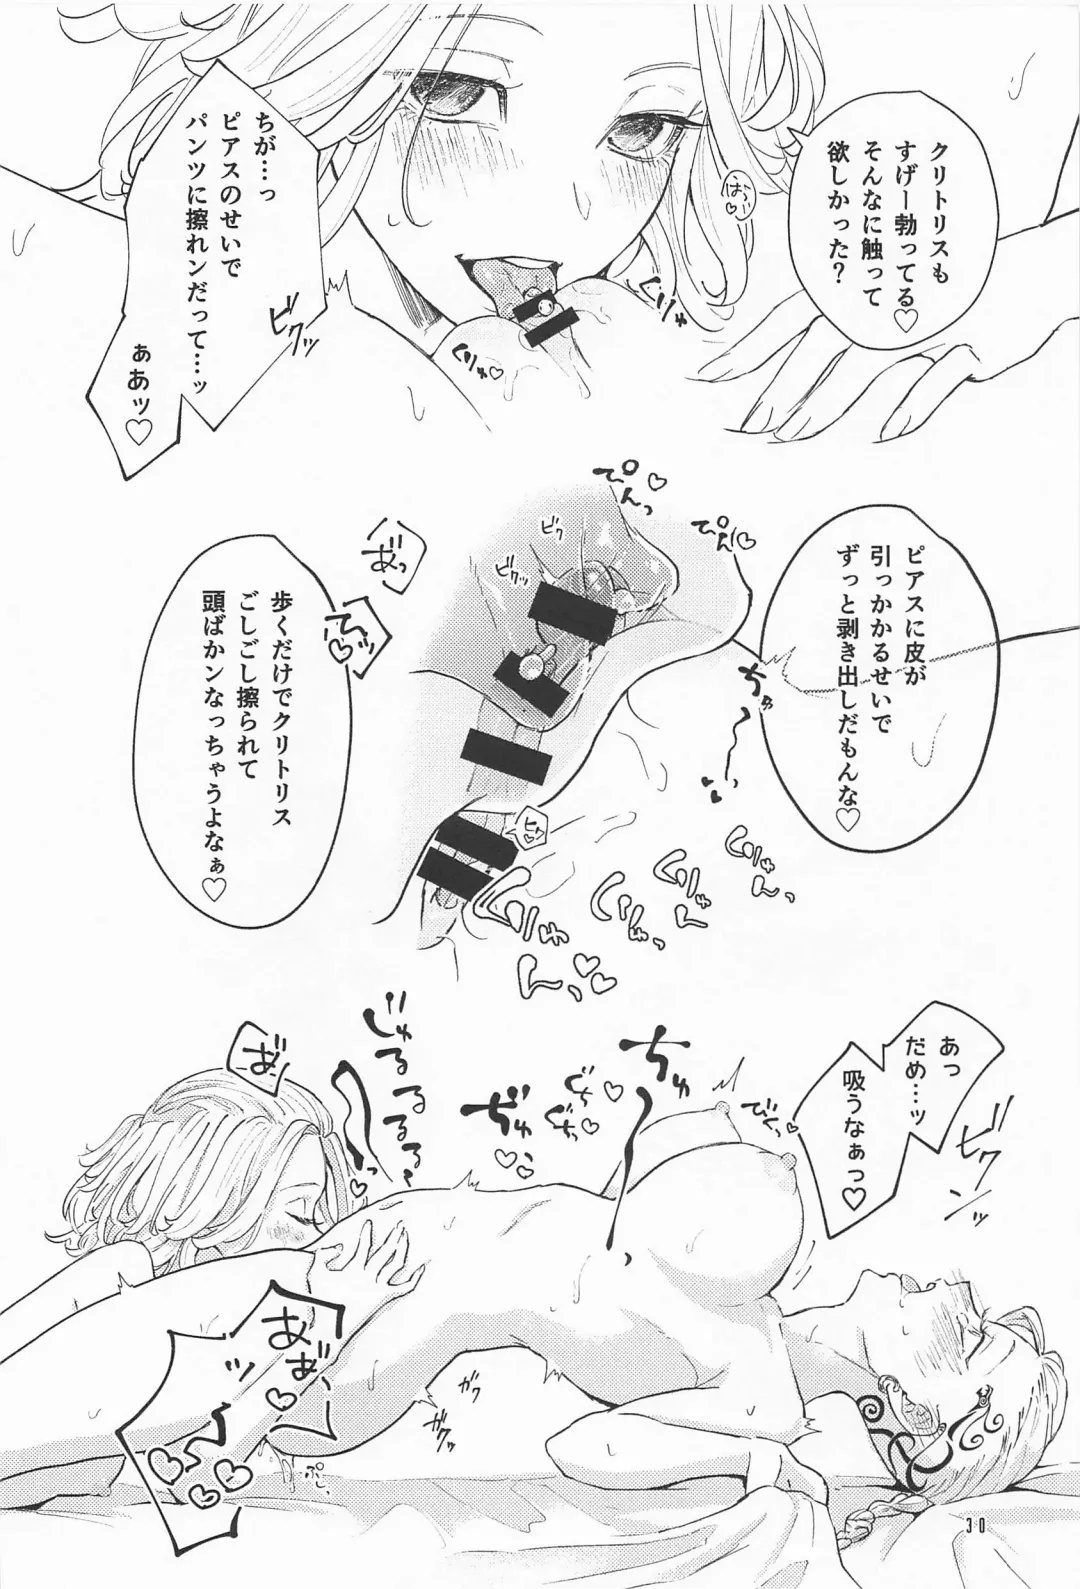 クリトリスも
すげー勃ってる♡
そんなに触って
欲しかった？
はぁ♡
ちが…っ
ピアスのせいで
パンツに擦れンだって…ッ
ぁあッ♡
ビクッ
ぐりゅ
ぐりゅ♡
ピアスに皮が
引っかかるせいで
ずっと剥き出しだもんな♡
ぴんっ♡
ぴんっ♡
ビク
ビクッ
あ゛っ
てッ♡
歩くだけでクリトリス
ごしごし擦られて
頭ばかンなっちゃうよなぁ♡
ちゅ
ヒク♡
ぐりゅん
ぐりゅん
ぐりゅん♡♡
あっ
だめ…ッ
吸うなぁっ♡
ビクンッ
びくっ♡
ちゅ
ぐちぐちっ♡♡
ぢゅ♡♡
じゅるるるるるっ♡
あ゛
あ゛あ゛ッ♡♡♡
ガク
ガクッ
ぷし
30